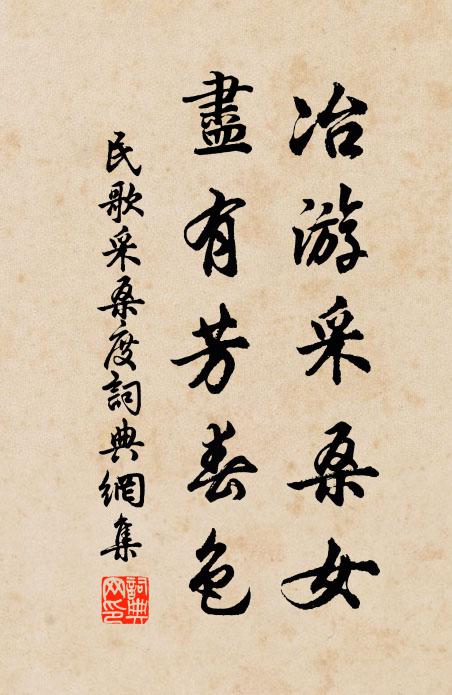 冶游采桑女
盡有芳春色
民歌采桑度詞典網集
詞典網印